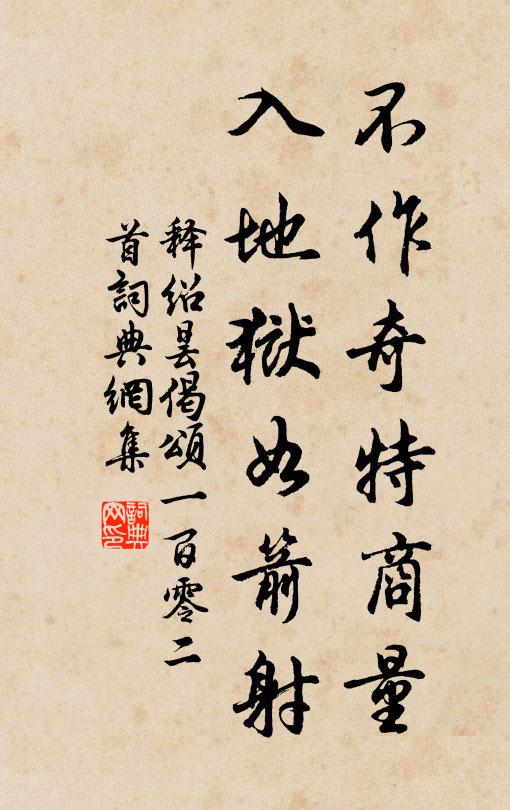 不作奇特商量
入地獄如箭射
释绍昙偈頌一百零二
首詞典網集
詞典
网印